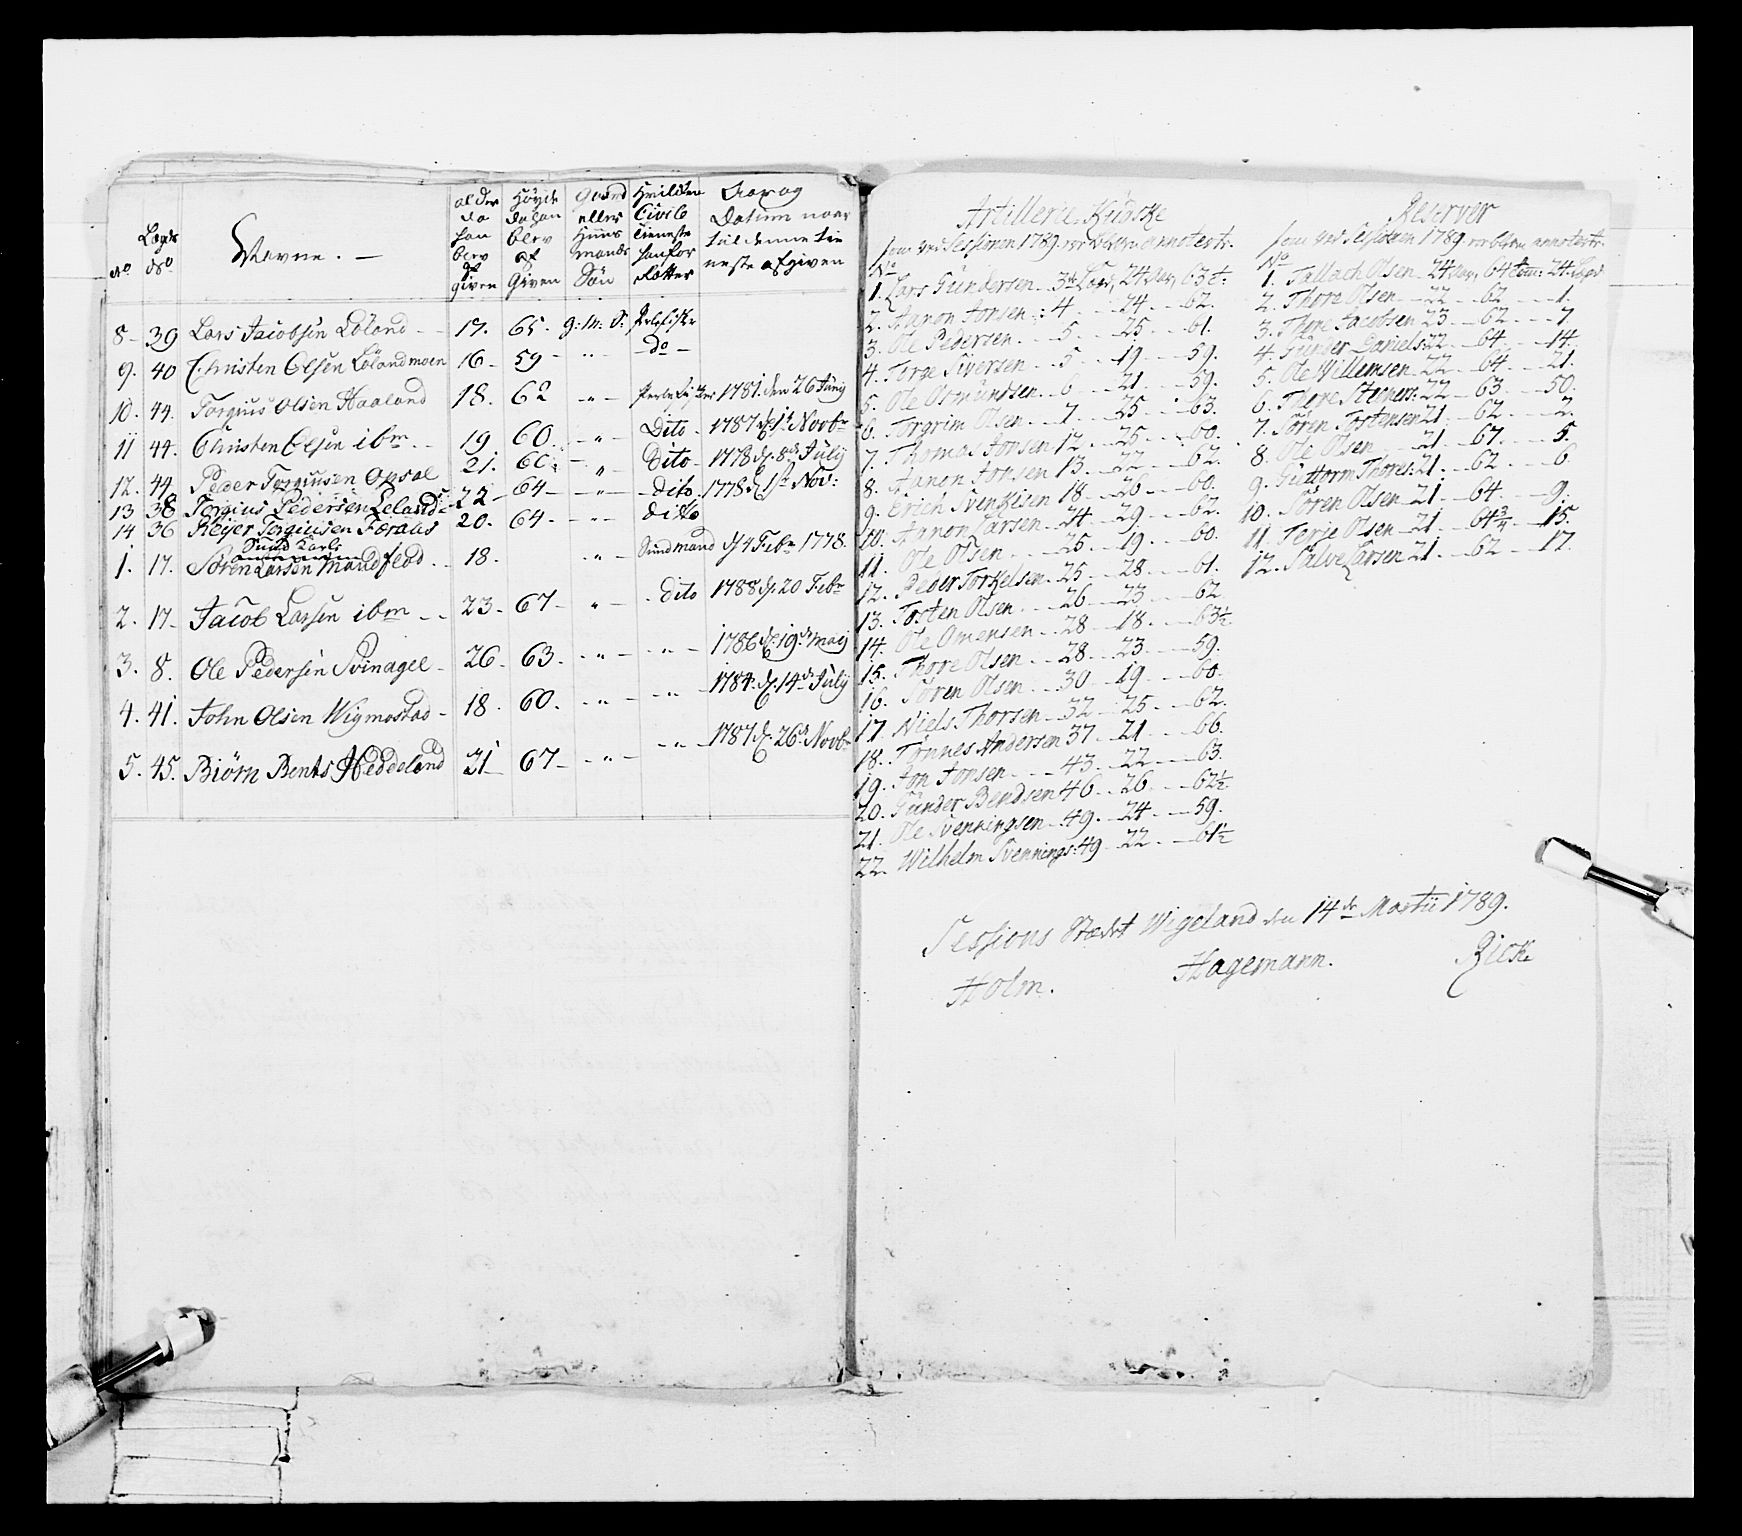 No
Lægds No
Nafne. —
alder da han blev af given
Höyde da han blev af Given
Gaard eller Huus mands Sön
Hvilken Civile Tieneste han for Retter
Aar og Datum naar til denne tieneste afgiven
8 - 39 Lars Jacobsen Löland - - 17. 65. g: m: S:
9. 40 Christen Olsen Lölandmoen 16 - 59 - " - do -
10. 44. Torgius Olsen Haaland 18. 62 - " - 1781. den 26 Junij
11 44. Christen Olsen ibm. . . 19 60. - " - Dito - 1787 d. 1t Novbr
12. 44. Peder Torgiusen Opsal 21. 60 - " - Dito - 1778 d. 8de July
13 38 Torgius Pedersen Leland 22 - 64 - " - dito. 1778 d. 1st Nov:
14 36 Reijer Torgiusen Færaas 20. 64 - " - dito
Sund Karle
1. 17. Sören Larsen Mandflod . . 18. " - Sundmand d. 4 Febr 1778.
2. 17 - Jacob Larsen ibm - - 23 - 67 - " - dito 1788 d. 20 Febr
3. 8. Ole Pedersen Svinagel - 26. 63. - " - " - 1786 d. 19de Maij
4. 41. John Olsen Wigmostad - 18. 60. - " - " - 1784. d. 14de July
5. 45. Biörn Bents Heddeland 31 - 67 - - " - - " - 1787 d. 26de Novbr
Artillerie Kudske
som ved Sessionen 1789 er blefven annoterte.
No
1. Lars Gundersen . . 3de Lægd, 24 Aar, 63 t:
2. Aanon Jonsen . : 4 . . . 24 . . . 62.
3. Ole Pedersen . . . 5 . . . 25 . . . 61.
4. Torge Siversen . . . 5 . . . 19 . . . 59.
5. Ole Osmundsen . . 6 . . . 21 . . . 59.
6. Torgrim Olsen . . . 7 . . . 25 . . . 63.
7. Thomas Jonsen 12 . . . 25 . . . 60.
8. Aanon Jonsen 13 . . . 22 . . . 62.
9. Erich Svenkisen 18 . . . 26 . . . 60.
10. Aanon Larsen . 24 . . . 29 . . . 62.
11. Ole Olsen . . . . 25 . . . 19 . . . 60.
12. Peder Torkelsen . 25 . . . 28 . . . 61.
13. Tosten Olsen . . . 26 . . . 23 . . . 62.
14. Ole Omensen . . . 28 . . . 18 . . . 63½
15. Thore Olsen . . . 28 . . . 23 . . . 59.
16. Sören Olsen . . . 30 . . . 19 . . . 60.
17. Niels Thorsen . . 32 . . . 25 . . . 62.
18. Tønnes Andersen 37 . . 21 . . . 66.
19. Jon Jonsen . . . . 43 . . 22 . . . 63.
20. Gunder Bendsen 46 . . 26 . . . 62½
21. Ole Svenningsen . 49 . . 24 . . . 59.
22. Wilhelm Svennings: 49 . . 22 . . . 61½
Reserver
som ved Sessionen 1789 er blefven annoterte.
No
1. Tallach Olsen . . 24 Aar, 64 tom: 24 Lægd
2. Thore Olsen . . 22 . . 62 . . . 1.
3. Thore Jacobsen 23 . . 62 . . . 7
4. Gunder Daniels: 22 . . 64 . . . 14.
5. Ole Willemsen . 22 . . 64 . . . 21.
6. Thore 22 . . 63 . . . 50.
7. Sören Tostensen 21 . . 62 . . . 2.
8. Ole Olsen . . . . 21 . . 67 . . . 5.
9. Guttorm Thores: 21 . . 62 . . . 6
10. Sören Olsen . 21 . . 64 . . . 9.
11. Terje Olsen . . 21 . . 64¾ . . . 15.
12. Salve Larsen 21 . . 62 . . . 17.
Sessions Stædet Wigeland den 14de Martii 1789.
Holm. Hagemann. Rick